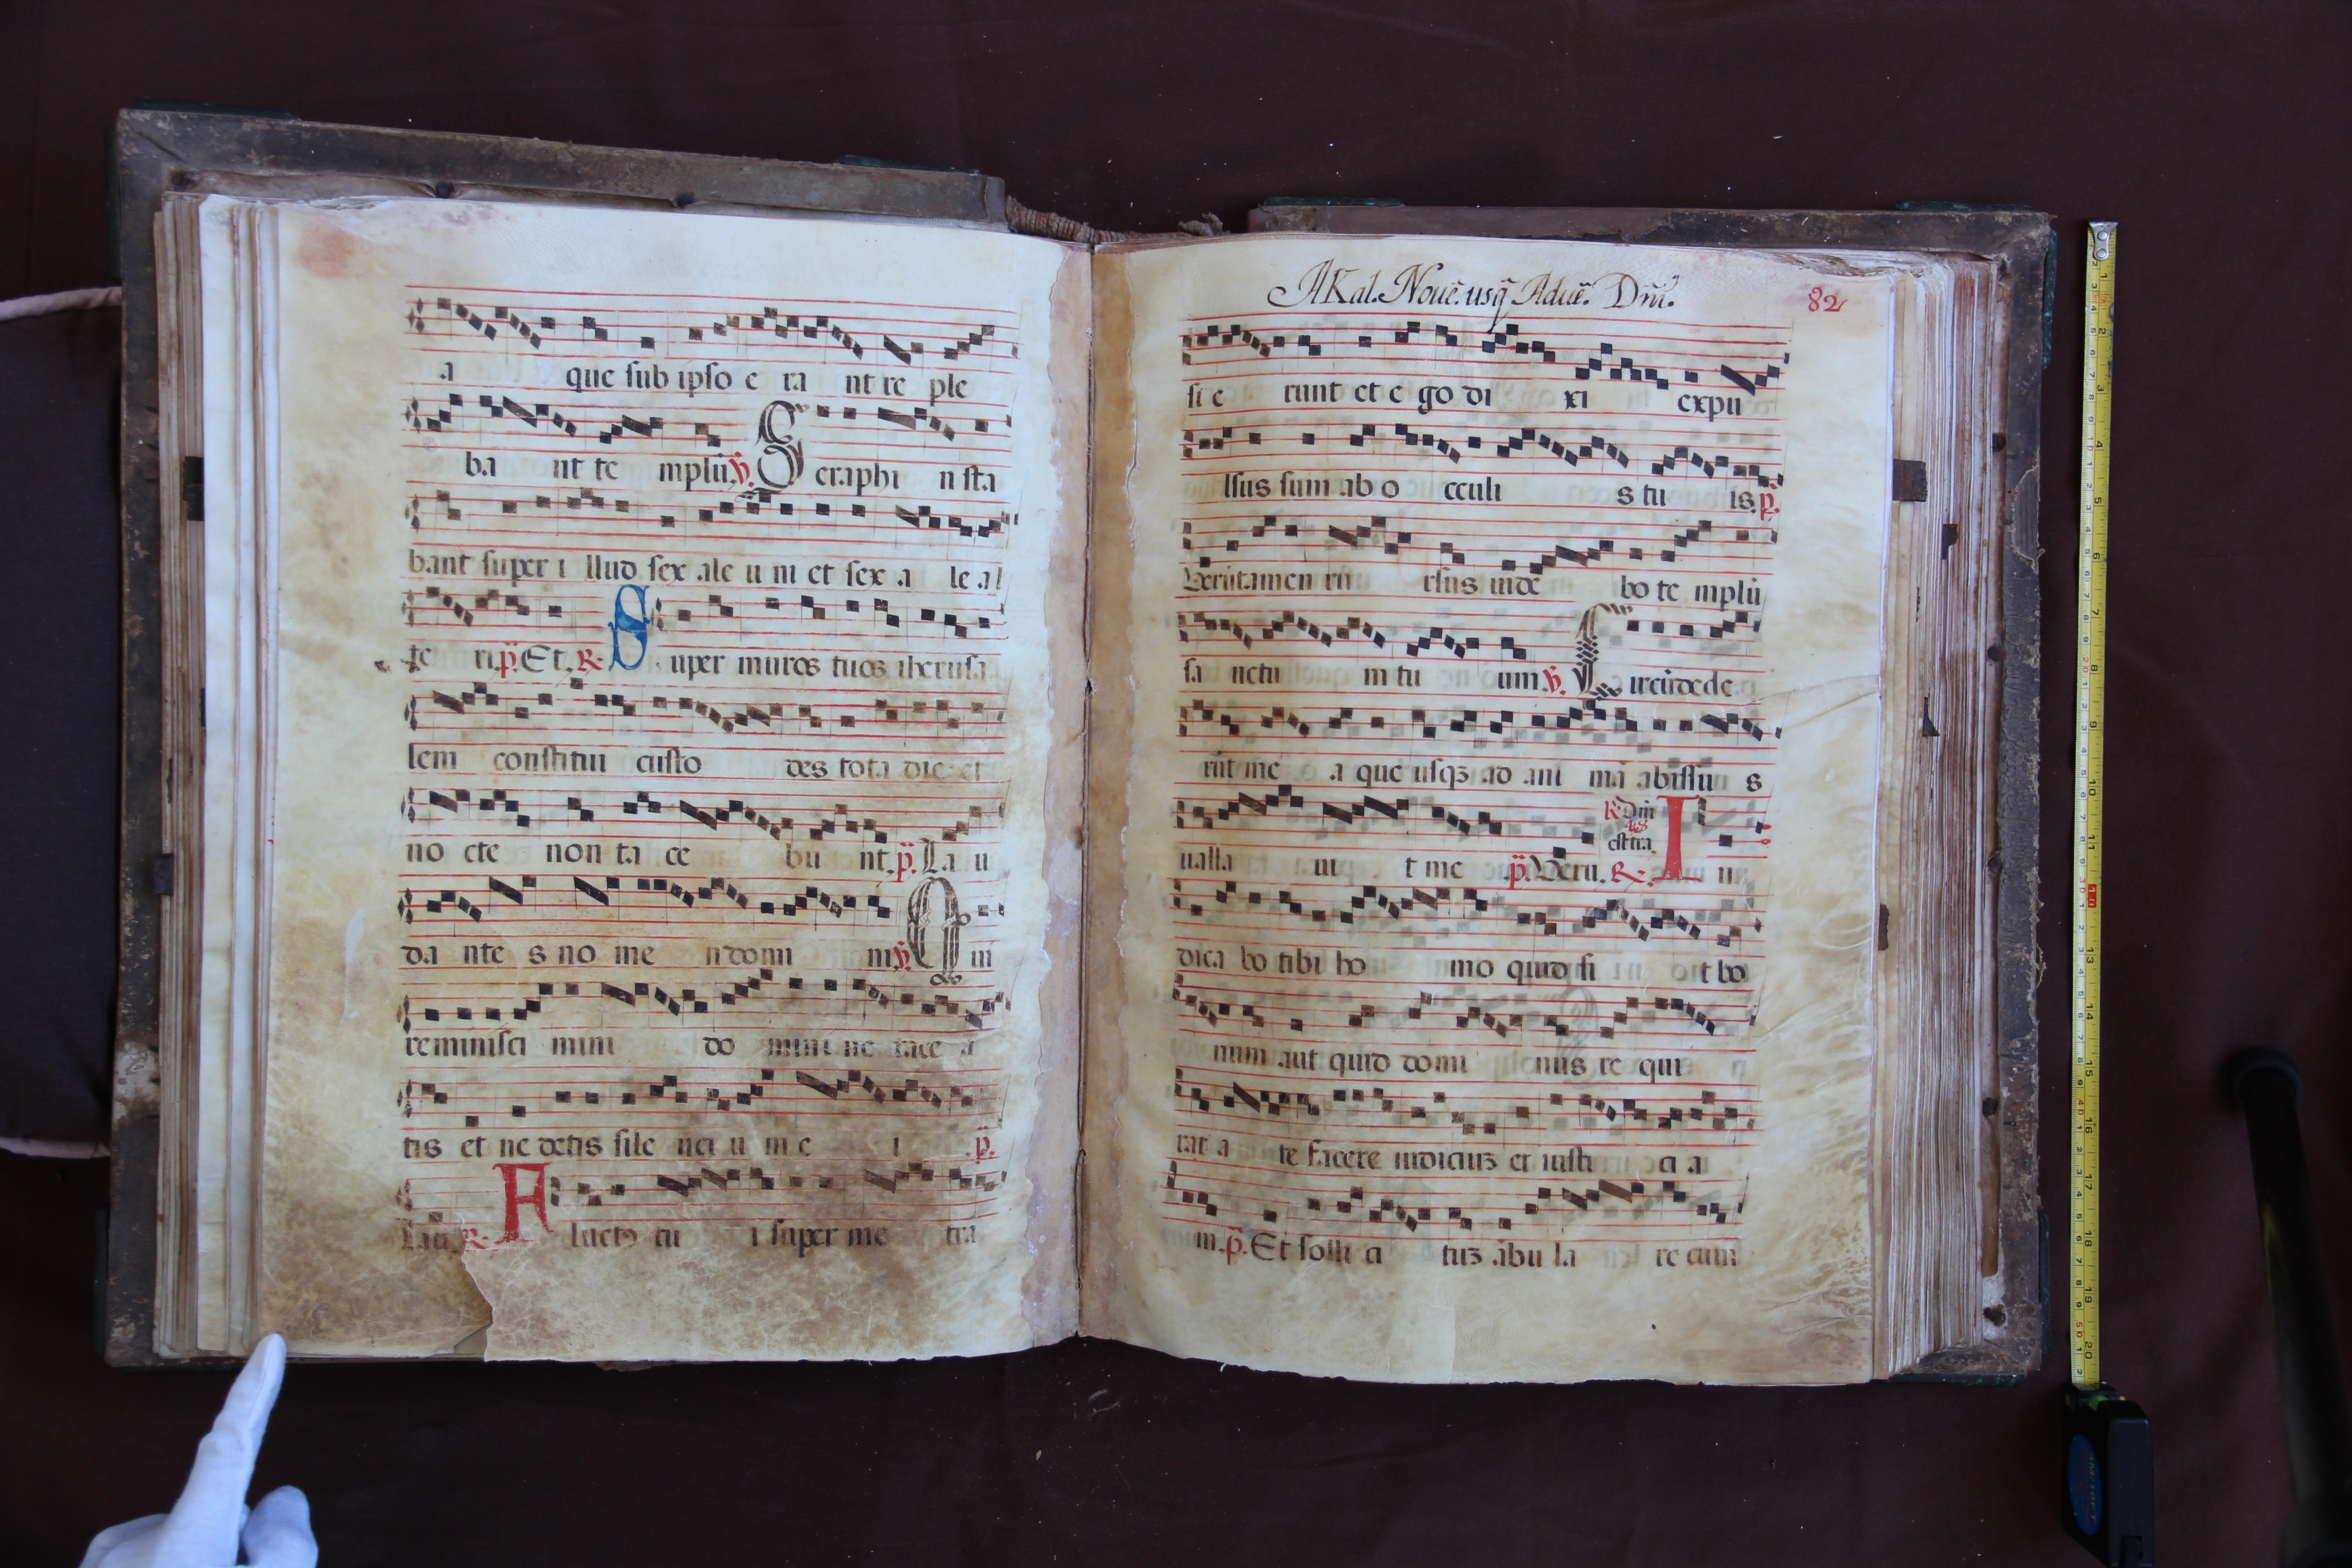 a que sub ipso e ra nt re ple
ba nt te mplũ ℣. Seraphi n sta
bant super i llud sex ale u ni et sex a le al
te ri p̃. Et. R. Super muros tuos iherusa
lem constitui custo des tota die et
no cte non ta ce bu nt. p̃. La u
da nte s no me n domi ni ℣. Qui
reminisci mini do mini ne tace a
tis et ne detis sile nci u m e i p̃.
Lau. R. A luctꝰ tu i super me tra
A Kal. Nouẽ. usq̃ Aduẽ. Dñi.
82
si e runt et e go di xi expu
lsus sum ab o cculi s tu is. p̃.
Verũtamen rũ rsus uide bo te mplũ
sa nctu m tu um ℣. Circũdede
rũt me a que usqꝫ ad ani mã abissu s
R. Dñi
48
est tra.
ualla ui t me p̃. Veru. R. In
dica bo tibi ho mo quid si it bo
num aut quid domi nus re qui
rat a te facere iudiciuꝫ et iusti ci a
m. p̃. Et solli ci tuꝫ ãbu la re cum